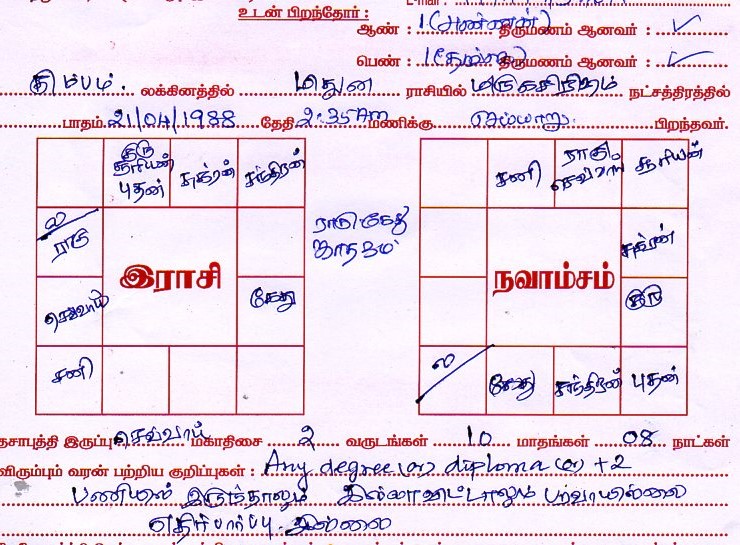 உடன் பிறந்தோர் :
ஆண் : 1 (அண்ணன்) திருமணம் ஆனவர் : ✓
பெண் : 1 திருமணம் ஆனவர் : ✓
லக்கினத்தில் மிதுன ராசியில் மிருகசிரிஷம் நட்சத்திரத்தில்
பாதம் 21/04/1988 தேதி 2:35 Am மணிக்கு பிறந்தவர்.
குரு சூரியன் புதன் சுக்ரன் சந்திரன்
ல ராகு
செவ்வாய்
சனி
கேது
இராசி
ராகு கேது
ஜாதகம்
சனி ராகு செவ்வாய் சூரியன்
சுக்ரன்
குரு
நவாம்சம்
ல கேது சந்திரன் புதன்
தசாபுத்தி இருப்பு செவ்வாய் மகாதிசை 2 வருடங்கள் 10 மாதங்கள் 08 நாட்கள்
விரும்பும் வரன் பற்றிய குறிப்புகள் : Any degree (or) diploma (or) +2
பணியில் இருந்தாலும் இல்லாவிட்டாலும் பரவாயில்லை
எதிர்பார்ப்பு இல்லை